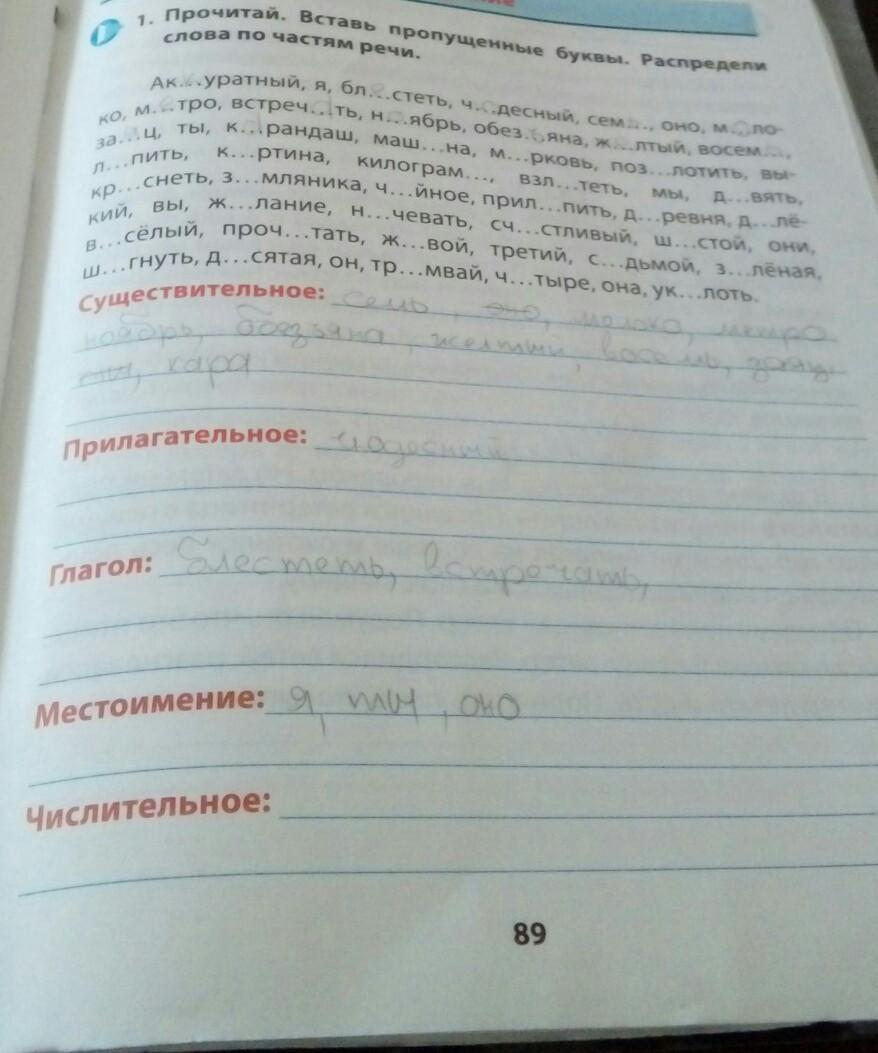 ние
1. Прочитай. Вставь пропущенные буквы. Распредели
слова по частям речи.
Ак...уратный, я, бл...стеть, ч...десный, сем..., оно, м...ло-
ко, м...тро, встреч...ть, н...ябрь, обез...яна, ж...лтый, восем...,
за...ц, ты, к...рандаш, маш...на, м...рковь, поз...лотить, вы-
л...пить, к...ртина, килограм..., взл...теть, мы, д...вять,
кр...снеть, з...мляника, ч...йное, прил...пить, д...ревня, д...лё-
кий, вы, ж...лание, н...чевать, сч...стливый, ш...стой, они,
в...сёлый, проч...тать, ж...вой, третий, с...дьмой, з...лёная,
ш...гнуть, д...сятая, он, тр...мвай, ч...тыре, она, ук...лоть.
Существительное: семь, оно, молоко, метро
ноябрь, желтый, восемь,
ты, кара
Прилагательное: чодесный
Глагол: блестеть, встречать,
Местоимение: я, ты, оно
Числительное:
89